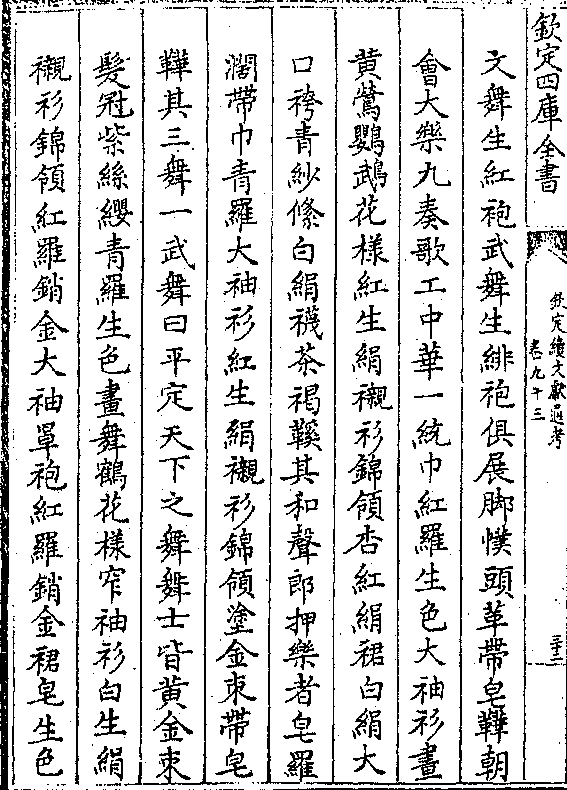 欽定四庫全書
欽定續文獻通考
卷九十三
三十二
文舞生紅袍武舞生緋袍俱展脚幞頭革帶皂鞾朝
會大樂九奏歌工中華一統巾紅羅生色大袖衫畫
黄鶯鸚鵡花樣紅生絹襯衫錦領杏紅絹裙白絹大
口袴青紗絛白絹襪茶褐鞵其和聲郎押樂者皂羅
濶帶巾青羅大袖衫紅生絹襯衫錦領塗金束帶皂
鞾其三舞一武舞曰平定天下之舞舞士皆黄金束
髮冠紫絲纓青羅生色畫舞鶴花樣窄袖衫白生絹
襯衫錦領紅羅銷金大袖罩袍紅羅銷金裙皂生色